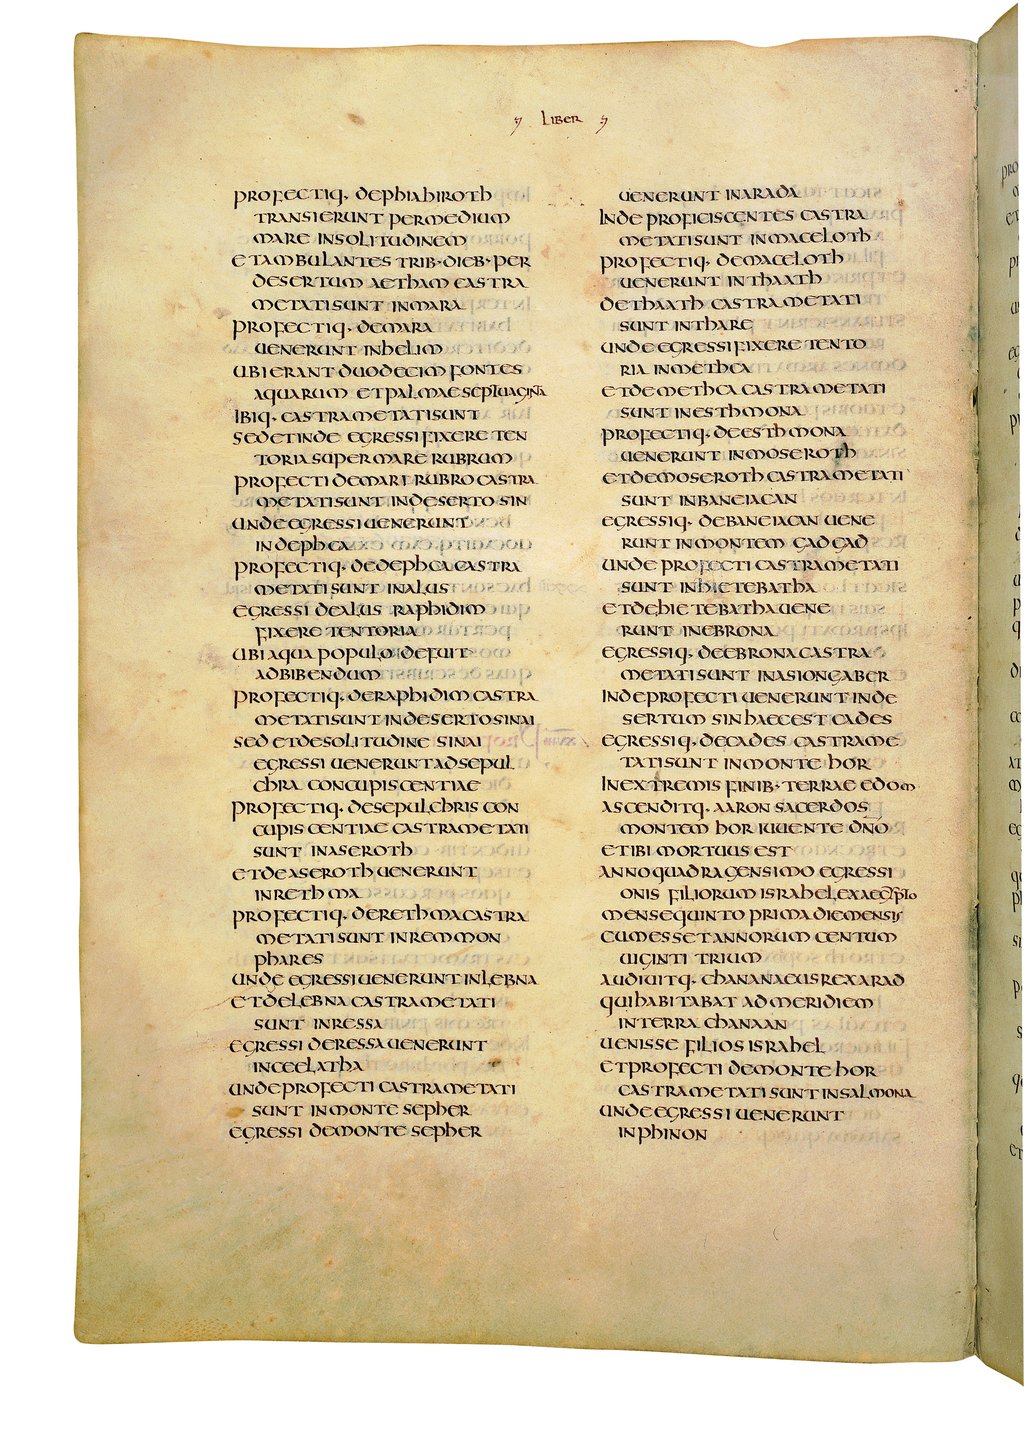 LIBER
PROFECTIQ· DEPHIAHIROTH
TRANSIERUNT PERMEDIUM
MARE INSOLITUDINEM
ETAMBULANTES TRIB·DIEB·PER
DESERTUM AETHAM CASTRA
METATISUNT INMARA
PROFECTIQ· DEMARA
UENERUNT INHELIM
UBIERANT DUODECIM FONTES
AQUARUM ETPALMAESEPTUAGINA
IBIQ· CASTRAMETATISUNT
SEDETINDE EGRESSI FIXERE TEN
TORIASUPERMARE RUBRUM
PROFECTI DEMARI RUBRO CASTRA
METATISUNT INDESERTO SIN
UNDEEGRESSIUENERUNT
INDEPHCA
PROFECTIQ· DEDEPHCACASTRA
METATISUNT INALUS
EGRESSI DEALUS RAPHIDIM
FIXERE TENTORIA
UBIAQUAPOPULO DEFUIT
ADBIBENDUM
PROFECTIQ· DERAPHIDIM CASTRA
METATISUNT INDESERTOSINAI
SED ETDESOLITUDINE SINAI
EGRESSI UENERUNTADSEPUL
CHRA CONCUPISCENTIAE
PROFECTIQ· DESEPULCHRIS CON
CUPISCENTIAE CASTRAMETATI
SUNT INASEROTH
ETDEASEROTH UENERUNT
INRETHMA
PROFECTIQ· DERETHMACASTRA
METATISUNT INREMMON
PHARES
UNDE EGRESSIUENERUNT INLEBNA
ETDELEBNA CASTRAMETATI
SUNT INRESSA
EGRESSI DERESSAUENERUNT
INCEELATHA
UNDEPROFECTI CASTRAMETATI
SUNT INMONTE SEPHER
EGRESSI DEMONTE SEPHER
UENERUNT INARADA
INDE PROFICISCENTES CASTRA
METATISUNT INMACELOTH
PROFECTIQ· DEMACELOTH
UENERUNT INTHAATH
DETHAATH CASTRAMETATI
SUNT INTHARE
UNDEEGRESSI FIXERE TENTO
RIA INMETHCA
ETDEMETHCA CASTRAMETATI
SUNT INESTHMONA
PROFECTIQ· DEESTHMONA
UENERUNT INMOSEROTH
ETDEMOSEROTH CASTRAMETATI
SUNT INBANEIACAN
EGRESSIQ· DEBANEIACAN UENE
RUNT INMONTEM GADGAD
UNDE PROFECTI CASTRAMETATI
SUNT INHIETEBATHA
ETDEHIETEBATHAUENE
RUNT INEBRONA
EGRESSIQ· DEEBRONACASTRA
METATISUNT INASIONGABER
INDEPROFECTI UENERUNT INDE
SERTUM SINHAECEST CADES
EGRESSIQ· DECADES CASTRAME
TATISUNT INMONTE HOR
INEXTREMIS FINIB· TERRAE EDOM
ASCENDITQ· AARON SACERDOS
MONTEM HOR IUUENTE DNO
ETIBI MORTUUS EST
ANNOQUADRAGENSIMO EGRESSI
ONIS FILIORUM ISRAHEL EXAEGYPTO
MENSEQUINTO PRIMADIEMENSIS
CUMESSETANNORUM CENTUM
UIGINTI TRIUM
AUDIUITQ· CHANANAEUSREXARAD
QUIHABITABAT ADMERIDIEM
INTERRA CHANAAN
UENISSE FILIOS ISRAHEL
ETPROFECTI DEMONTE HOR
CASTRAMETATISUNT INSALMONA
UNDEEGRESSI UENERUNT
INPHINON